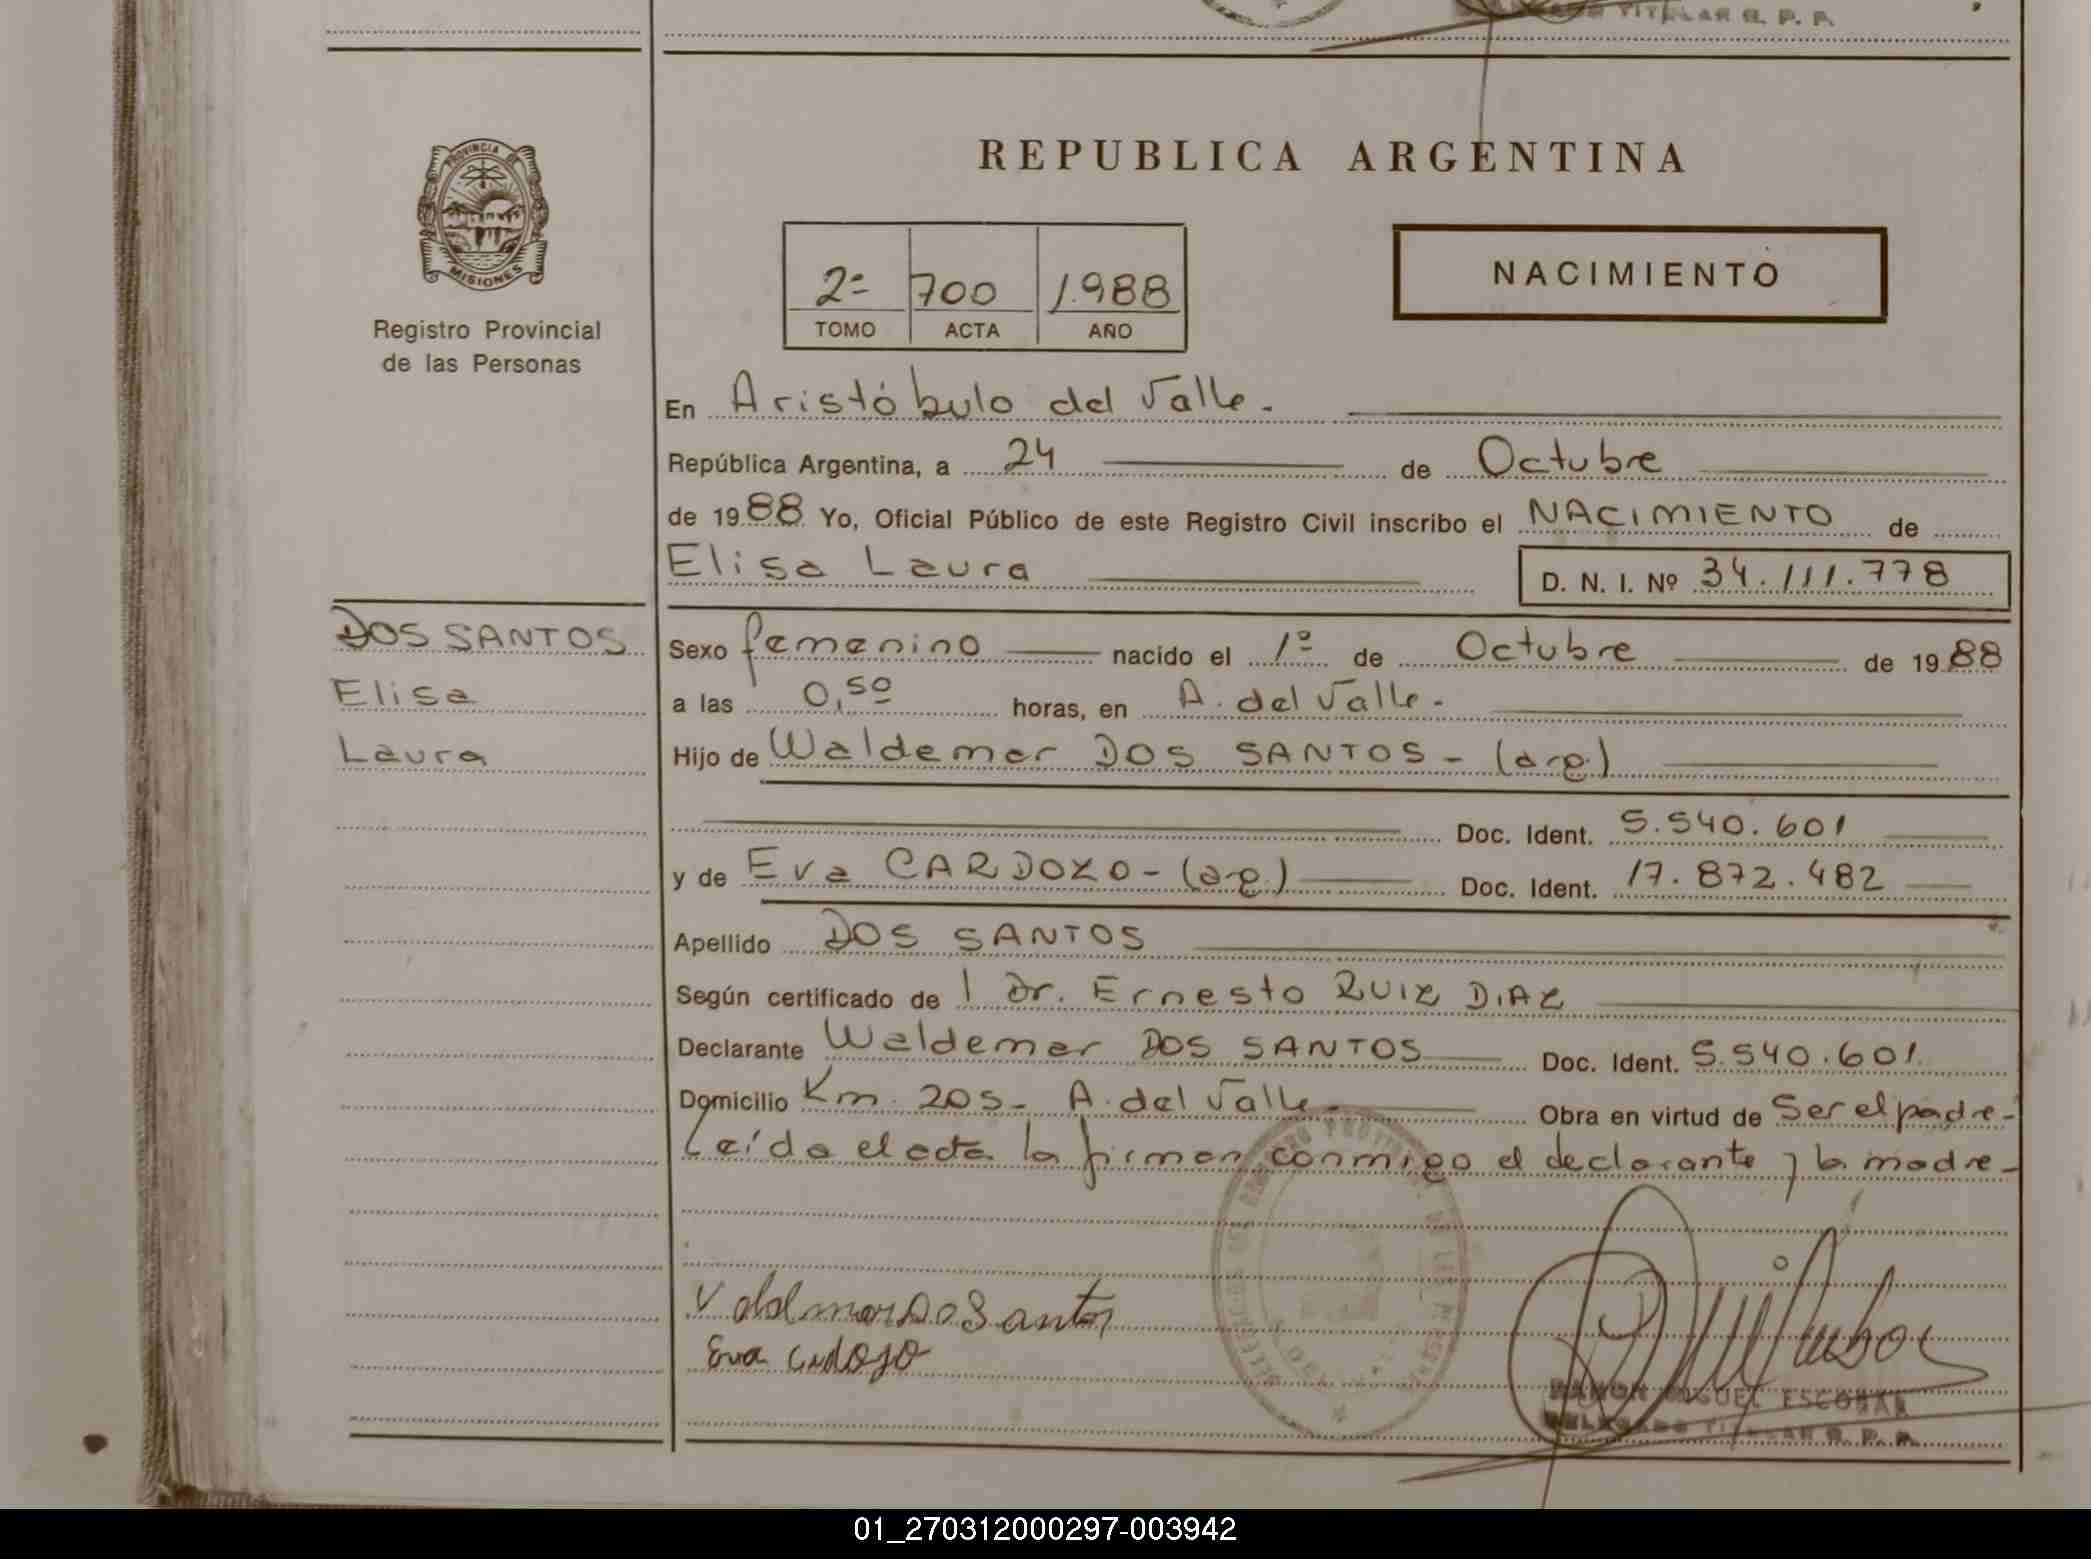 TITULAR R. P. P.
PROVINCIA DE
MISIONES
Registro Provincial
de las Personas
REPUBLICA ARGENTINA
2º 700 1.988
TOMO ACTA AÑO
NACIMIENTO
En Aristóbulo del Valle.
República Argentina, a 24 de Octubre
de 1988 Yo, Oficial Público de este Registro Civil inscribo el NACIMIENTO de
Elisa Laura D. N. I. Nº 34.111.778
DOS SANTOS
Elisa
Laura
Sexo femenino nacido el 1º de Octubre de 1988
a las 0,50 horas, en A. del Valle.
Hijo de Waldemar DOS SANTOS - (arg)
Doc. Ident. 5.540.601
y de Eva CARDOZO - (arg.) Doc. Ident. 17.872.482
Apellido DOS SANTOS
Según certificado de l Dr. Ernesto RUIZ DIAZ
Declarante Waldemar DOS SANTOS Doc. Ident. 5.540.601
Domicilio Km. 205 - A. del Valle. Obra en virtud de Ser el padre -
Leída el acta la firman conmigo el declarante y la madre -
Valdemar Do Santos
Eva Cadoso
RAMON MIGUEL ESCOBAR
DELEGADO TITULAR R. P. P.
01_270312000297-003942